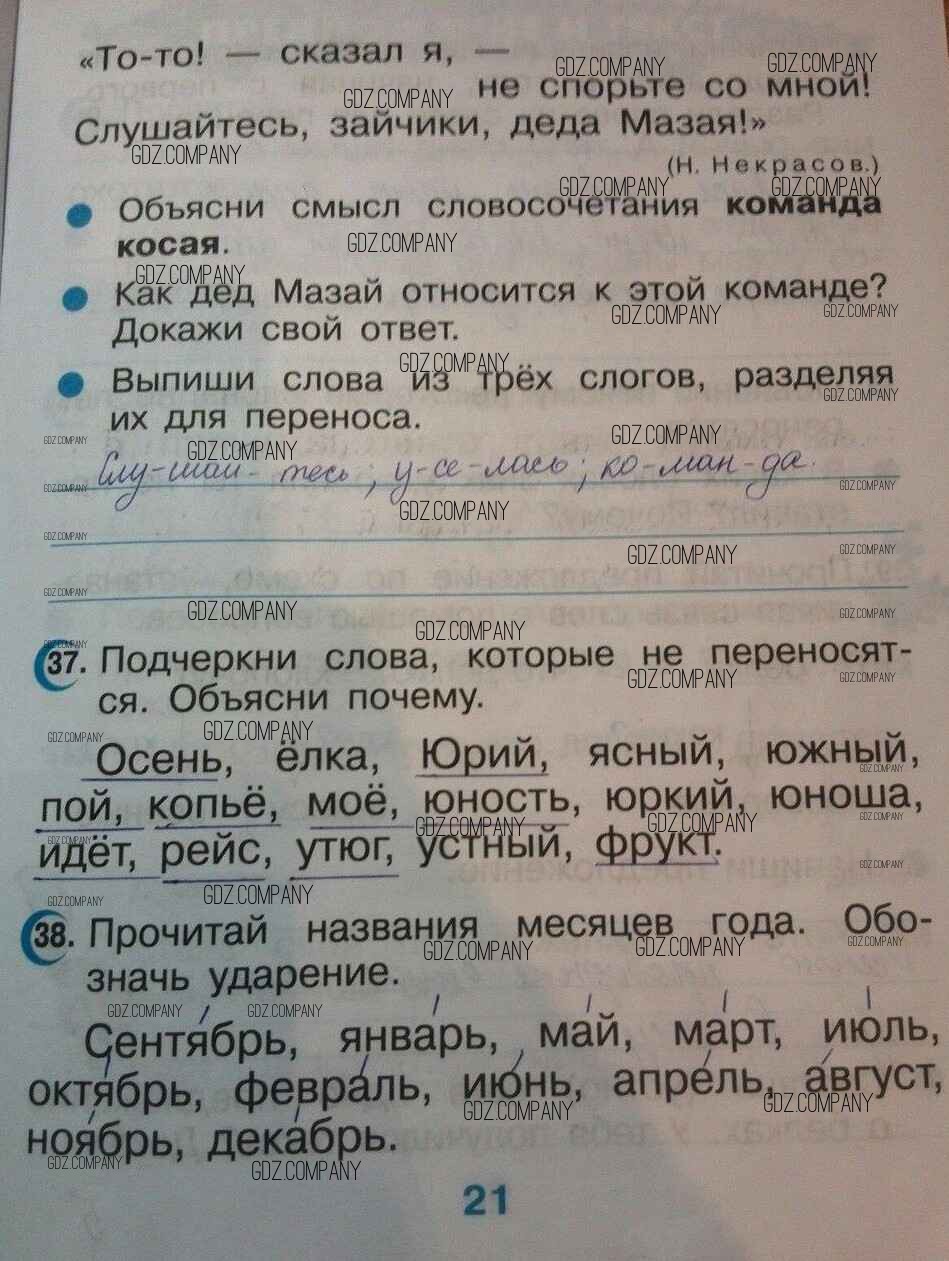 «То-то! — сказал я, —
не спорьте со мной!
Слушайтесь, зайчики, деда Мазая!»
(Н. Некрасов.)
Объясни смысл словосочетания команда
косая.
Как дед Мазай относится к этой команде?
Докажи свой ответ.
Выпиши слова из трёх слогов, разделяя
их для переноса.
Слу-шай-тесь; у-се-лась; ко-ман-да.
37. Подчеркни слова, которые не переносят-
ся. Объясни почему.
Осень, ёлка, Юрий, ясный, южный,
пой, копьё, моё, юность, юркий, юноша,
идёт, рейс, утюг, устный, фрукт.
38. Прочитай названия месяцев года. Обо-
значь ударение.
Сентябрь, январь, май, март, июль,
октябрь, февраль, июнь, апрель, август,
ноябрь, декабрь.
21
GDZ.COMPANY